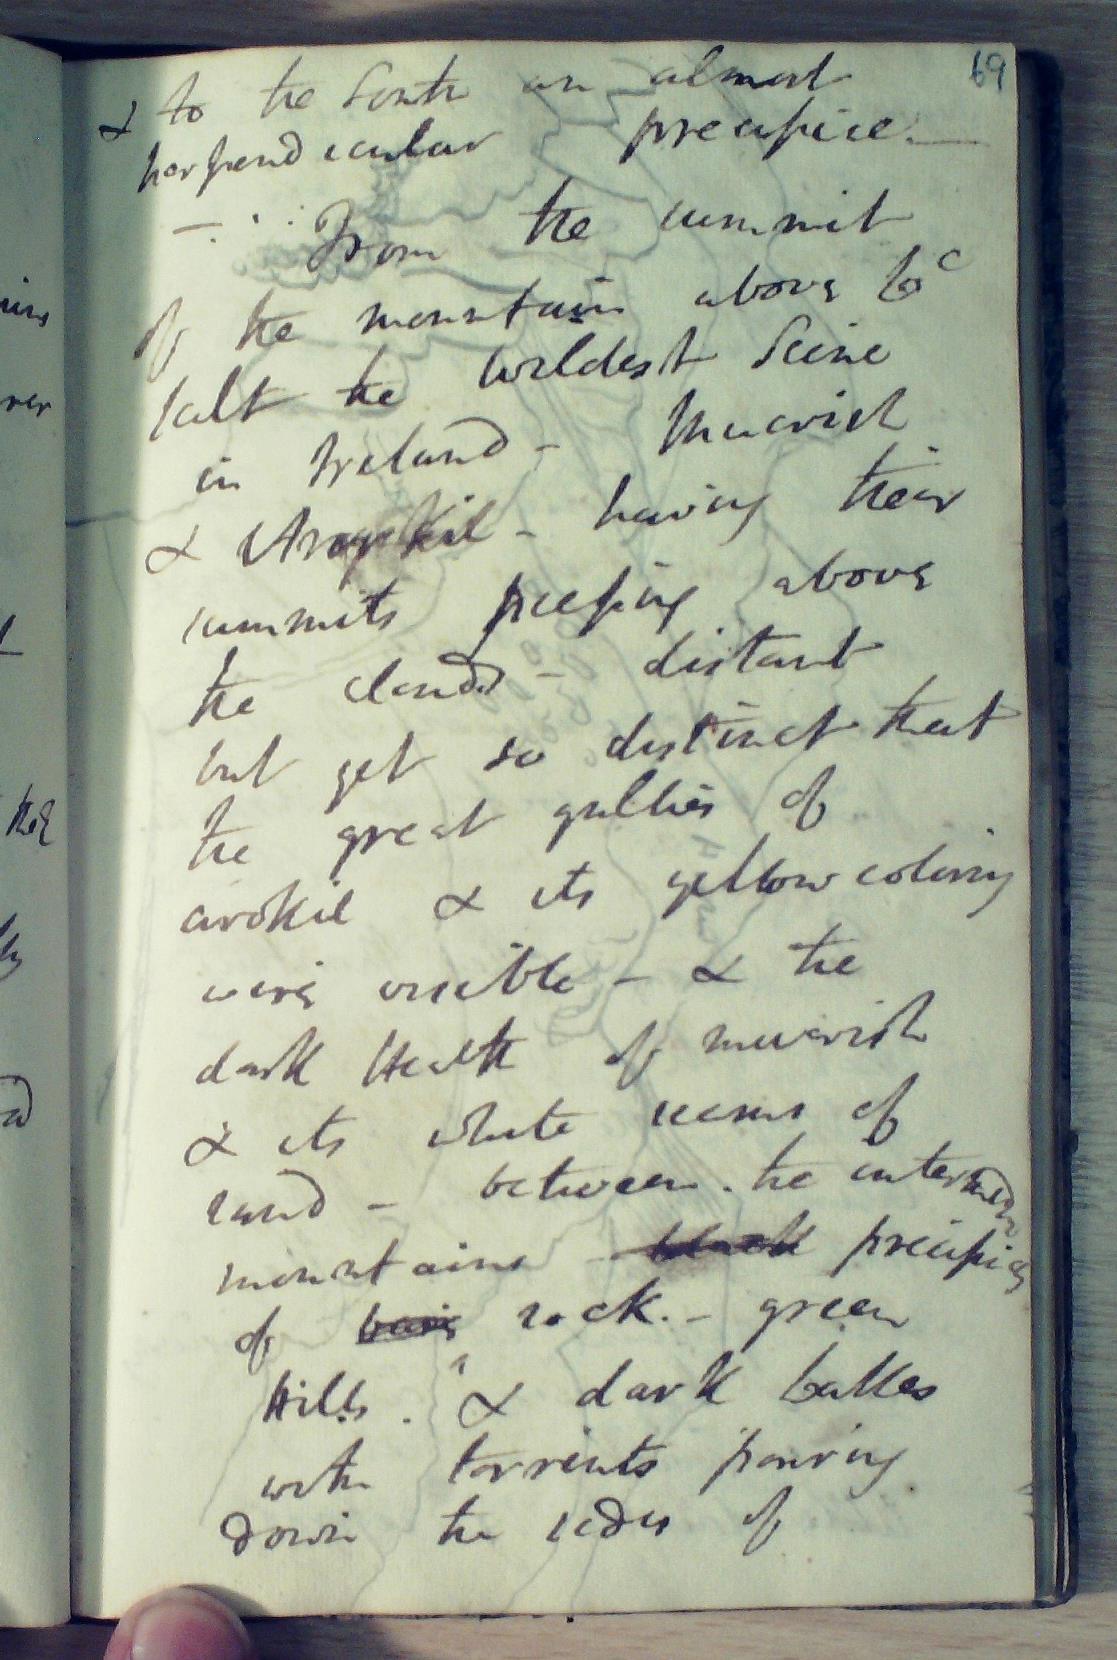 69
& to the South an almost
perpendicular precipice. —
— . . . From the summit
of the mountain above
the wildest Scene
in Ireland - Muckish
& having their
summits peeping above
the clouds - distant
but yet so distinct that
the great gullies of
arokil & its yellow coloring
were visible - & the
dark Heath of muckish
& its white seams of
sand - between the
mountains - black precipices
of bare rock. - green
Hills . & dark lakes
with torrents pouring
down the sides of